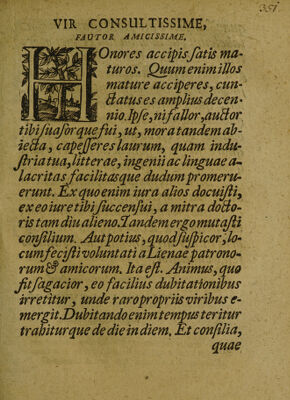 351
VIR CONSULTISSIME,
FAUTOR AMICISSIME,
HOnores accipis satis ma-
turos. Quum enim illos
mature acciperes, cun-
ctatus es amplius decen-
nio. Ipse, ni fallor, auctor
tibi suasorque fui, ut, mora tandem ab-
jecta, capesseres laurum, quam indu-
stria tua, litterae, ingenii ac linguae a-
lacritas facilitasque dudum promeru-
erunt. Ex quo enim iura alios docuisti,
ex eo iure tibi succensui, a mitra docto-
ris tam diu alieno. Tandem ergo mutasti
consilium. Aut potius, quod suspicor, lo-
cum fecisti voluntati aLienae patrono-
rum & amicorum. Ita est. Animus, quo
fit sagacior, eo facilius dubitationibus
irretitur, unde raro propriis viribus e-
mergit. Dubitando enim tempus teritur
trahiturque de die in diem. Et consilia,
quae